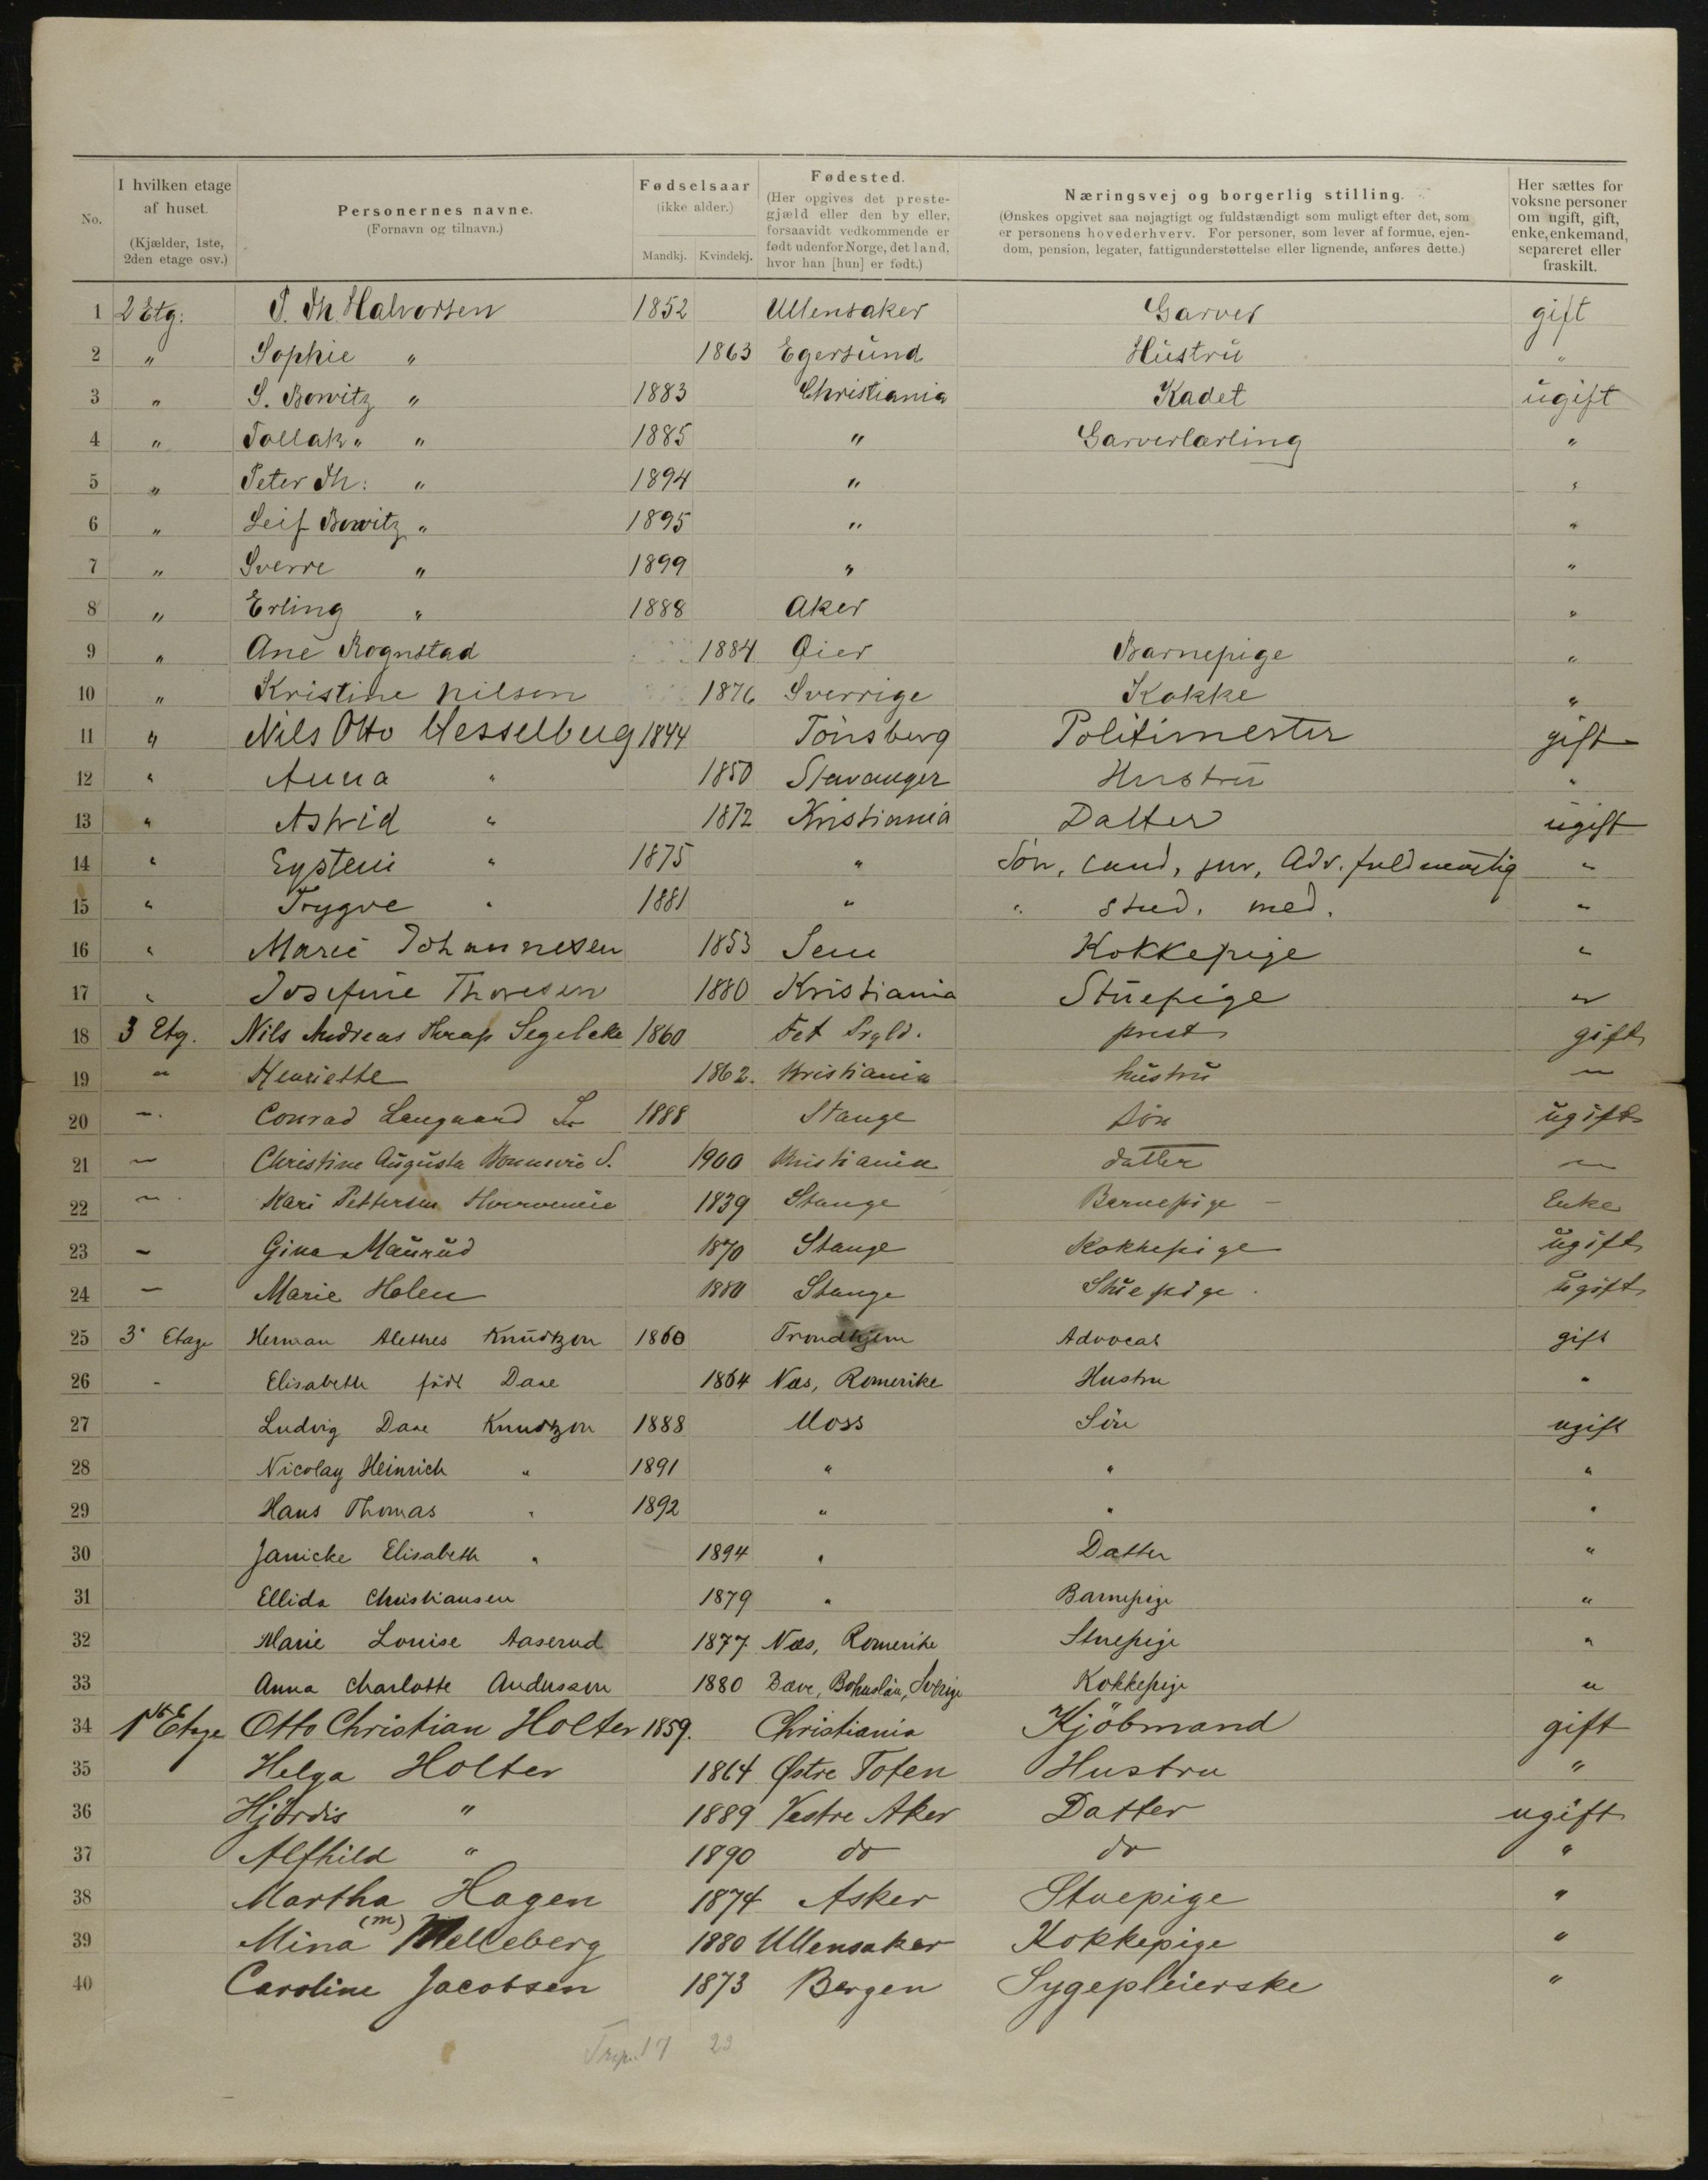 No.
I hvilken etage af huset. (Kjælder, 1ste, 2den etage osv.)
Personernes navne. (Fornavn og tilnavn.)
Fødselsaar (ikke alder.) Mandkj. Kvindekj.
Fødested. (Her opgives det prestegjæld eller den by eller, forsaavidt vedkommende er født udenfor Norge, det land, hvor han [hun] er født.)
Næringsvej og borgerlig stilling. (Ønskes opgivet saa nøjagtigt og fuldstændigt som muligt efter det, som er personens hovederhverv. For personer, som lever af formue, ejendom, pension, legater, fattigunderstøttelse eller lignende, anføres dette.)
Her sættes for voksne personer om ugift, gift, enke, enkemand, separeret eller fraskilt.
1 2 Etg: P. Th. Halvorsen 1852 Ullensaker Garver gift
2 " Sophie " 1863 Egersund Hustru "
3 " S. Bowitz " 1883 Christiania Kadet ugift
4 " Tollak " " 1885 " Garverlærling "
5 " Peter Th: " 1894 " "
6 " Leif Bowitz " 1895 " "
7 " Sverre " 1899 " "
8 " Erling " 1888 Aker "
9 " Ane Rognstad 1884 Øier Barnepige "
10 " Kristine Nilsen 1876 Sverrige Kokke "
11 " Nils Otto Hesselberg 1844 Tönsberg Politimester gift
12 " Anna " 1850 Stavanger Hustru "
13 " Astrid " 1872 Kristiania Datter ugift
14 " Eystein " 1875 " Søn, cand, jur, Adv. fuldmægtig "
15 " Trygve " 1881 " " stud. med. "
16 " Marie Johannesen 1853 Sem Kokkepige "
17 " Josefine Thoresen 1880 Kristiania Stuepige "
18 3 Etg. Nils Andreas Thrap Segelcke 1860 Fet Prgld. prest gift
19 " Henriette 1862. Kristiania hustru "
20 " Conrad Langaard S. 1888 Stange søn ugift
21 " Christine Augusta S. 1900 Kristiania datter "
22 " Kari Pettersen 1839 Stange Barnepige - Enke
23 " Gina Maurud 1870 Stange Kokkepige ugift
24 " Marie Holen 1880 Stange Stuepige. ugift
25 3' Etage Herman Alethes Knudtzon 1860 Trondhjem Advocat gift
26 " Elisabeth født Daae 1864 Næs, Romerike Hustru "
27 Ludvig Daae Knudtzon 1888 Moss Sön ugift
28 Nicolay Heinrich " 1891 " " "
29 Hans Thomas " 1892 " " "
30 Janicke Elisabeth " 1894 " Datter "
31 Ellida Christiansen 1879 " Barnepige "
32 Marie Louise Aaserud 1877 Næs, Romerike Stuepige "
33 Anna Charlotte Andersson 1880 Bave, Bohuslän, Sverige Kokkepige "
34 1ste Etage Otto Christian Holter 1859. Christiania Kjöbmand gift
35 Helga Holter 1864 Østre Toten Hustru "
36 Hjördis " 1889 Vestre Aker Datter ugift
37 Alfhild " 1890 do do "
38 Martha Hagen 1874 Asker Stuepige "
39 Mina (M) Melleberg 1880 Ullensaker Kokkepige "
40 Caroline Jacobsen 1873 Bergen Sygepleierske "
17 23